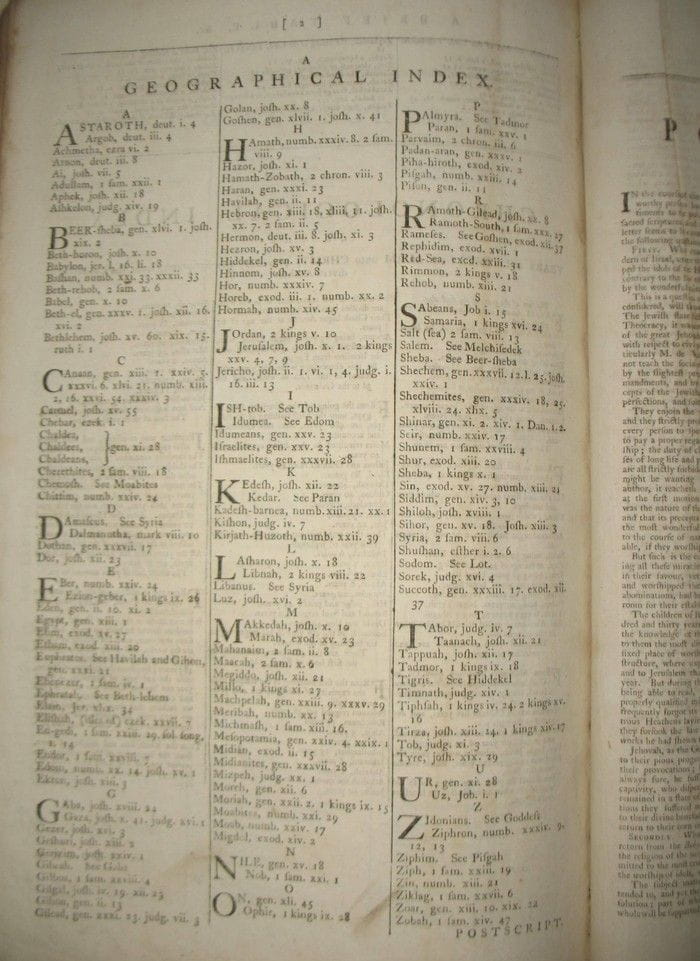 [ 2 ]
A
GEOGRAPHICAL INDEX.
A
ASTAROTH, deut. i. 4
Argob, deut. iii. 4
Achmetha, ezra vi. 2
Arnon, deut. iii. 8
Ai, joſh. vii. 5
Adullam, 1 ſam. xxii. 1
Aphek, joſh. xii. 18
Aſhkelon, judg. xiv. 19
B
BEER-ſheba, gen. xlvi. 1. joſh.
xix. 2
Beth-horon, joſh. x. 10
Babylon, jer. l. 16. li. 18
Baſhan, numb. xxi. 33. xxxii. 33
Beth-rehob, 2 ſam. x. 6
Babel, gen. x. 10
Beth-el, gen. xxxv. 1. joſh. xii. 16.
xvi. 2
Bethlehem, joſh. xv. 60. xix. 15.
ruth i. 1
C
CAnaan, gen. xiii. 7. xxiv. 3.
xxxvi. 6. xlvi. 21. numb. xiii.
2, 16. xxvi. 54. xxxiv. 3
Carmel, joſh. xv. 55
Chebar, ezek. i. 1
Chaldea,
Chaldees, gen. xi. 28
Chaldeans,
Cherethites, 2 ſam. viii. 18
Chemoſh. See Moabites
Chittim, numb. xxiv. 24
D
DAmaſcus. See Syria
Dalmanutha, mark viii. 10
Dothan, gen. xxxvii. 17
Dor, joſh. xii. 23
E
EBer, numb. xxiv. 24
Ezion-geber, 1 kings ix. 26
Eden, gen. ii. 10. xi. 2
Egypt, gen. xiii. 1
Elim, exod. xv. 27
Etham, exod. xiii. 20
Euphrates. See Havilah and Gihon,
gen. xxxi. 21
Ebenezer, 1 ſam. iv. 1
Ephratah. See Beth-lehem
Elam, jer. xlix. 34
Eliſhah, (iſles of) ezek. xxvii. 7
En-gedi, 1 ſam. xxiii. 29. ſol. ſong.
i. 14
Endor, 1 ſam. xxviii. 7
Edom, numb. xx. 14. joſh. xv. 1
Ekron, joſh. xiii. 3
G
GAba, joſh. xviii. 24
Gaza, joſh. x. 41. judg. xvi. 1
Gezer, joſh. xvi. 3
Geſhuri, joſh. xiii. 2
Gerizim, joſh. xxiv. 1
Gilboa, 1 ſam. xxviii. 4
Gilgal, joſh. iv. 19. xii. 23
Gihon, gen. ii. 13
Gilead, gen. xxxi. 23. judg. vii. 3
Golan, joſh. xx. 8
Goſhen, gen. xlvii. 1. joſh. x. 41
H
HAmath, numb. xxxiv. 8. 2 ſam.
viii. 9
Hazor, joſh. xi. 1
Hamath-Zobath, 2 chron. viii. 3
Haran, gen. xxxi. 23
Havilah, gen. ii. 11
Hebron, gen. xiii. 18, xliii, 11. joſh.
xx. 7. 2 ſam. ii. 5
Hermon, deut. iii. 8. joſh. xi. 3
Hezron, joſh. xv. 3
Hiddekel, gen. ii. 14
Hinnom, joſh. xv. 8
Hor, numb. xxxiv. 7
Horeb, exod. iii. 1. numb. xx. 2
Hormah, numb. xiv. 45
J
JOrdan, 2 kings v. 10
Jeruſalem, joſh. x. 1. 2 kings
xxv. 4, 7, 9
Jericho, joſh. ii. 1. vi. 1, 4. judg. i.
16. iii. 13
I
ISH-tob. See Tob
Idumea. See Edom
Idumeans, gen. xxv. 23
Iſraelites, gen. xxv. 23
Iſhmaelites, gen. xxxvii. 28
K
KEdeſh, joſh. xii. 22
Kedar. See Paran
Kadeſh-barnea, numb. xiii. 21. xx. 1
Kiſhon, judg. iv. 7
Kirjath-Huzoth, numb. xxii. 39
L
LAſharon, joſh. x. 18
Libnah, 2 kings viii. 22
Libanus. See Syria
Luz, joſh. xvi. 2
M
MAkkedah, joſh. x. 10
Marah, exod. xv. 23
Mahanaim, 2 ſam. ii. 8
Maacah, 2 ſam. x. 6
Megiddo, joſh. xii. 21
Millo, 1 kings xi. 27
Machpelah, gen. xxiii. 9. xxxv. 29
Meribah, numb. xx. 13
Michmaſh, 1 ſam. xiii. 16.
Meſopotamia, gen. xxiv. 4. xxix. 1
Midian, exod. ii. 15
Midianites, gen. xxxvii. 28
Mizpeh, judg. xx. 1
Moreh, gen. xii. 6
Moriah, gen. xxii. 2. 1 kings ix. 15
Moabites, numb. xxi. 29
Moab, numb. xxiv. 17
Migdol, exod. xiv. 2
N
NILE, gen. xv. 18
Nob, 1 ſam. xxi. 1
O
ON, gen. xli. 45
Ophir, 1 kings ix. 28
P
PAlmyra. See Tadmor
Paran, 1 ſam. xxv. 1
Parvaim, 2 chron. iii. 6
Padan-aran, gen. xxxv. 1
Piha-hiroth, exod. xiv. 2
Piſgah, numb. xxiii. 14
Piſon, gen. ii. 11
R
RAmoth-Gilead, joſh. xx. 8
Ramoth-South, 1 ſam. xxx. 27
Rameſes. See Goſhen, exod. xii. 37
Rephidim, exod. xvii. 1
Red-Sea, exod. xxiii. 31
Rimmon, 2 kings v. 18
Rehob, numb. xiii. 21
S
SAbeans, Job i. 15
Samaria, 1 kings xvi. 24
Salt (ſea) 2 ſam. viii. 13
Salem. See Melchiſedek
Sheba. See Beer-ſheba
Shechem, gen. xxxvii. 12. l. 25. joſh.
xxiv. 1
Shechemites, gen. xxxiv. 18, 25.
xlviii. 24. xlix. 5
Shinar, gen. xi. 2. xiv. 1. Dan. i. 2.
Seir, numb. xxiv. 17
Shunem, 1 ſam. xxviii. 4
Shur, exod. xiii. 20
Sheba, 1 kings x. 1
Sin, exod. xv. 27. numb. xiii. 21
Siddim, gen. xiv. 3, 10
Shiloh, joſh. xviii. 1
Sihor, gen. xv. 18. Joſh. xiii. 3
Syria, 2 ſam. viii. 6
Shuſhan, eſther i. 2. 6
Sodom. See Lot.
Sorek, judg. xvi. 4
Succoth, gen. xxxiii. 17. exod. xii.
37
T
TAbor, judg. iv. 7
Taanach, joſh. xii. 21
Tappuah, joſh. xii. 17
Tadmor, 1 kings ix. 18
Tigris. See Hiddekel
Timnath, judg. xiv. 1
Tiphſah, 1 kings iv. 24. 2 kings xv.
16
Tirza, joſh. xiii. 24. 1 kings xiv. 17
Tob, judg. xi. 3
Tyre, joſh. xix. 29
U
UR, gen. xi. 28
Uz, Job. i. 1
Z
ZIdonians. See Goddeſs
Ziphron, numb. xxxiv. 9.
12, 13
Ziphim. See Piſgah
Ziph, 1 ſam. xxiii. 19
Zin, numb. xiii. 21
Ziklag, 1 ſam. xxvii. 6
Zoar, gen. xiii. 10. xix. 22
Zobah, 1 ſam. xiv. 47
POSTSCRIPT.
P